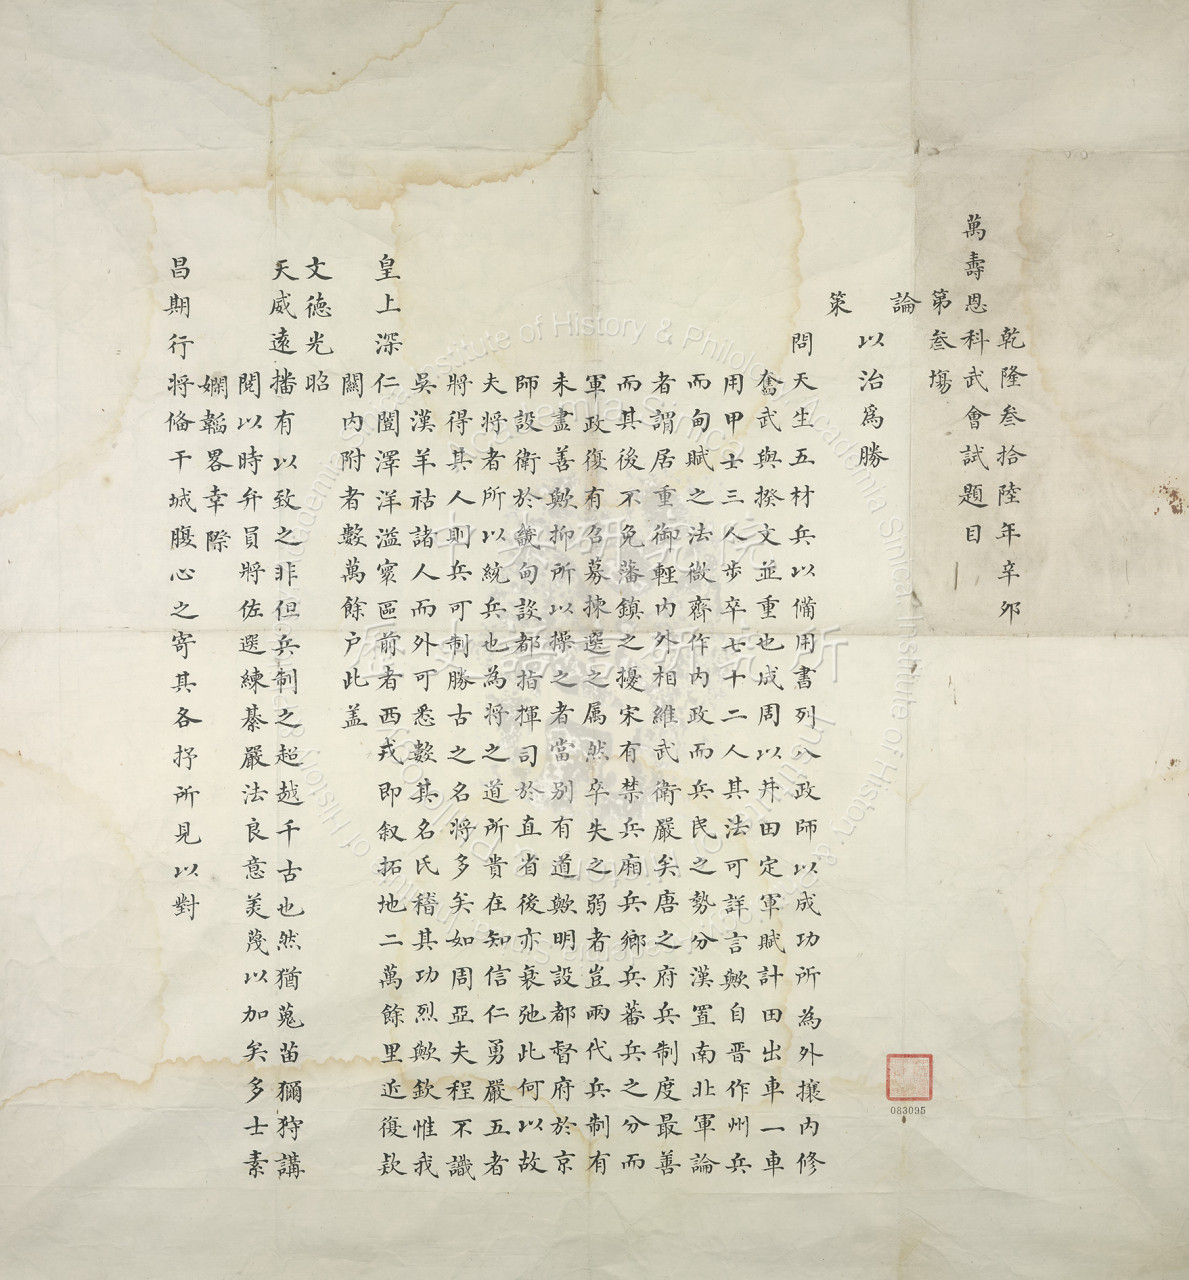 乾隆叁拾陸年辛夘
萬壽恩科武會試題目
第叁塲
論
以治為勝
策
問天生五材兵以備用書列八政師以成功所為外攘内修
奮武與揆文並重也成周以井田定軍賦計田出車一車
用甲士三人步卒七十二人其法可詳言歟自晋作州兵
而甸賦之法微齊作内政而兵民之勢分漢置南北軍論
者謂居重御輕内外相維武衛嚴矣唐之府兵制度最善
而其後不免藩鎮之擾宋有禁兵廂兵鄉兵蕃兵之分而
軍政復有召募揀選之属然卒失之弱者豈兩代兵制有
未盡善歟抑所以操之者當别有道歟明設都督府於京
師設衛於畿甸設都指揮司於直省後亦衰弛此何以故
夫將者所以統兵也為將之道所貴在知信仁勇嚴五者
將得其人則兵可制勝古之名將多矣如周亞夫程不識
吳漢羊祜諸人而外可悉數其名氏稽其功烈歟欽惟我
皇上深仁闓澤洋溢寰區前者西戎即叙拓地二萬餘里近復欵
闗内附者數萬餘户此盖
文德光昭
天威遠播有以致之非但兵制之超越千古也然猶蒐苗獮狩講
閱以時弁員將佐選練綦嚴法良意美蔑以加矣多士素
嫻韜畧幸際
昌期行將備干城腹心之寄其各抒所見以對
083095
中央研究院
歷史語言研究所
Institute of History & Philology, Academia Sinica